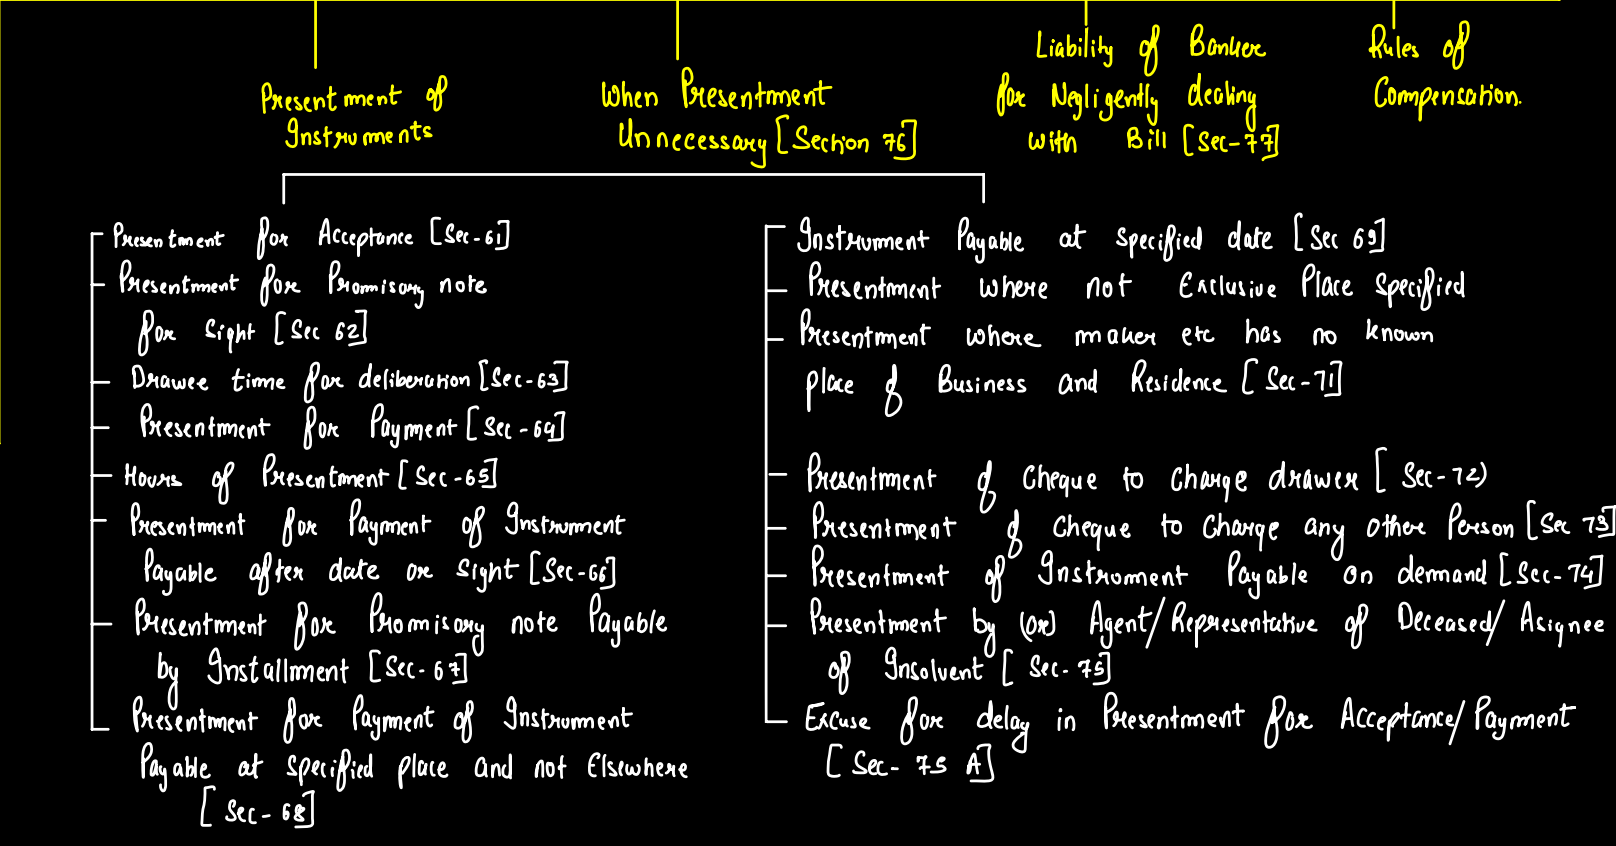 Presentment of
Instruments
When Presentment
Unnecessary [Section 76]
Liability of Banker
for Negligently dealing
with Bill [Sec-77]
Rules of
Compensation.
Presentment for Acceptance [Sec-61]
Presentment for Promisory note
for sight [Sec 62]
Drawee time for deliberation [Sec-63]
Presentment for Payment [Sec-64]
Hours of Presentment [Sec-65]
Presentment for Payment of Instrument
Payable after date or sight [Sec-66]
Presentment for Promisory note Payable
by Installment [Sec-67]
Presentment for Payment of Instrument
Payable at specified place and not Elsewhere
[Sec-68]
Instrument Payable at specified date [Sec 69]
Presentment where not Exclusive Place specified
Presentment where maker etc has no known
place of Business and Residence [Sec-71]
Presentment of cheque to charge drawer [Sec-72)
Presentment of cheque to charge any other Person [Sec 73]
Presentment of Instrument Payable on demand [Sec-74]
Presentment by (or) Agent/Representative of Deceased/Asignee
of Insolvent [Sec-75]
Excuse for delay in Presentment for Acceptance/Payment
[Sec-75 A]